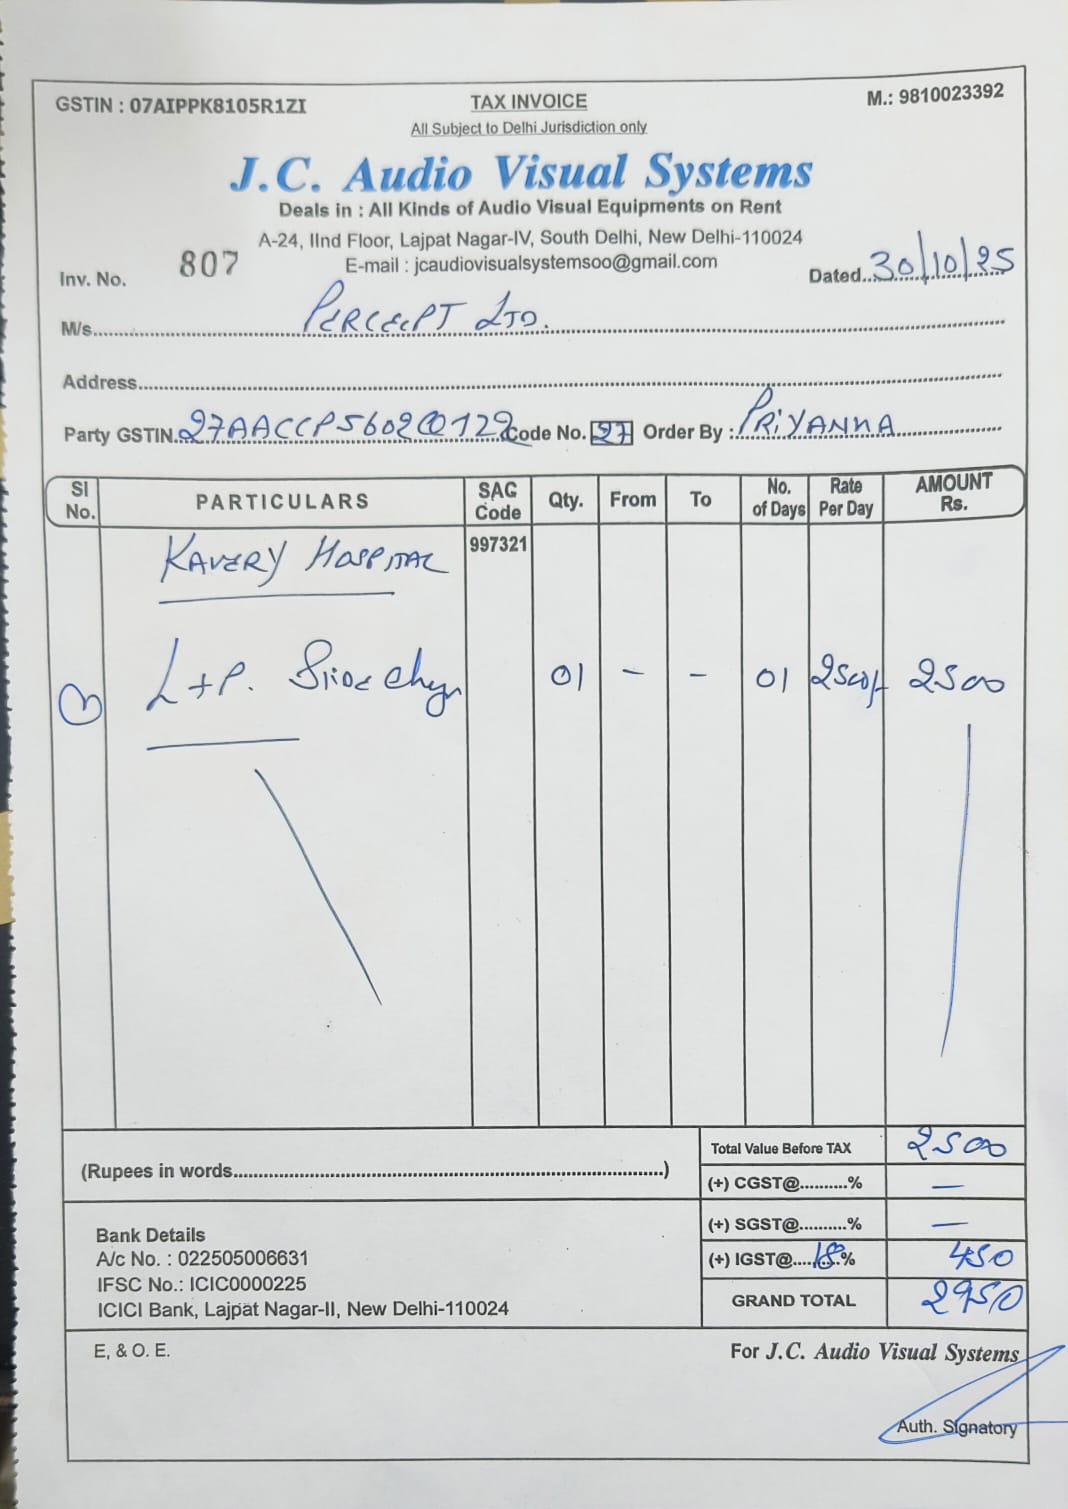 GSTIN : 07AIPPK8105R1ZI
TAX INVOICE
M.: 9810023392
All Subject to Delhi Jurisdiction only
J.C. Audio Visual Systems
Deals in : All Kinds of Audio Visual Equipments on Rent
A-24, IInd Floor, Lajpat Nagar-IV, South Delhi, New Delhi-110024
E-mail : jcaudiovisualsystemsoo@gmail.com
Inv. No. 807
Dated..30/10/25
M/s. PERCEPT LTD.
Address
Party GSTIN. Code No. 27 Order By : PRIYANKA
Sl No. PARTICULARS SAG Code Qty. From To No. of Days Rate Per Day AMOUNT Rs.
KAVERY HOSPITAL 997321
L+P. 01 - - 01 2500/- 2500
Total Value Before TAX 2500
(Rupees in words.)
(+) CGST@..........% —
(+) SGST@..........% —
(+) IGST@....18..% 450
GRAND TOTAL 2950
Bank Details
A/c No. : 022505006631
IFSC No.: ICIC0000225
ICICI Bank, Lajpat Nagar-II, New Delhi-110024
E, & O. E.
For J.C. Audio Visual Systems
Auth. Signatory